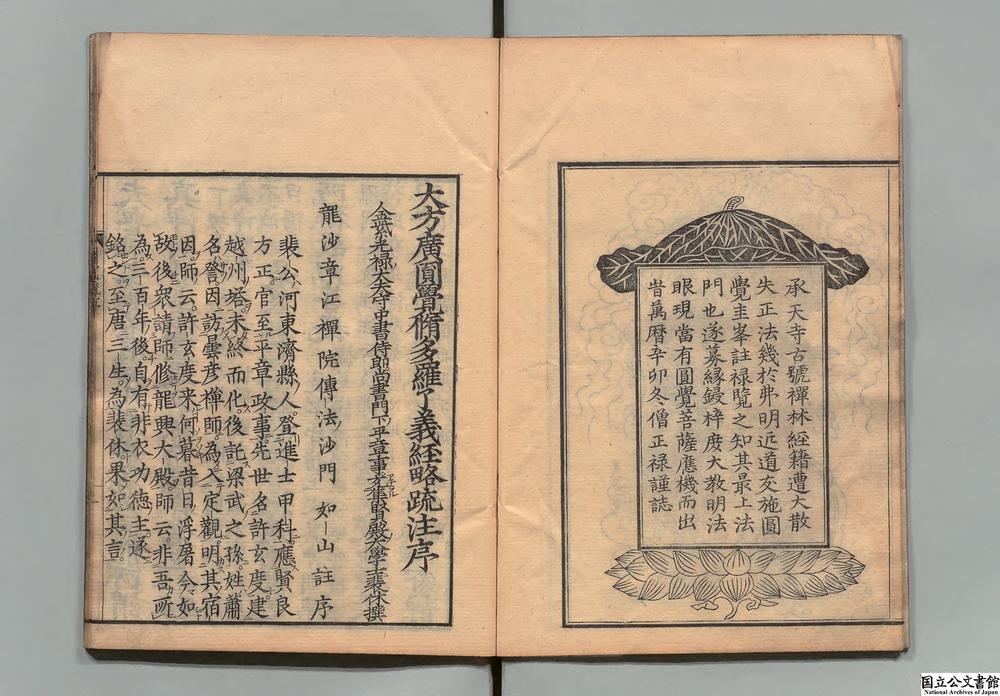 承天寺古號禪林經籍遭大散
失正法幾於弗明近道友施圓
覺圭峯註禄覽之知其最上法
門也遂募緣鋟梓庻大教明法
眼現當有圓覺菩薩應機而出
旹萬曆辛卯冬僧正禄謹誌
大方廣圓覺脩多羅了義経略疏注序
金紫光禄大夫守中書侍郎尚書門下平章事充集賢殿大學士裴休撰
龍沙章江禪院傳法沙門 如山註序
裴公河東濟縣人登進士甲科應賢良
方正官至平章政事先世名許玄度建
越州塔未終而化後託梁武之孫姓蕭
名詧因訪曇彦禅師為入定觀明其宿
因師云許玄度来何暮昔日浮屠今如
故後衆請師修龍興大殿師云非吾所
為三百年後自有非衣功德主遂
銘之至唐三生為裴休果如其言
国立公文書館
National Archives of Japan